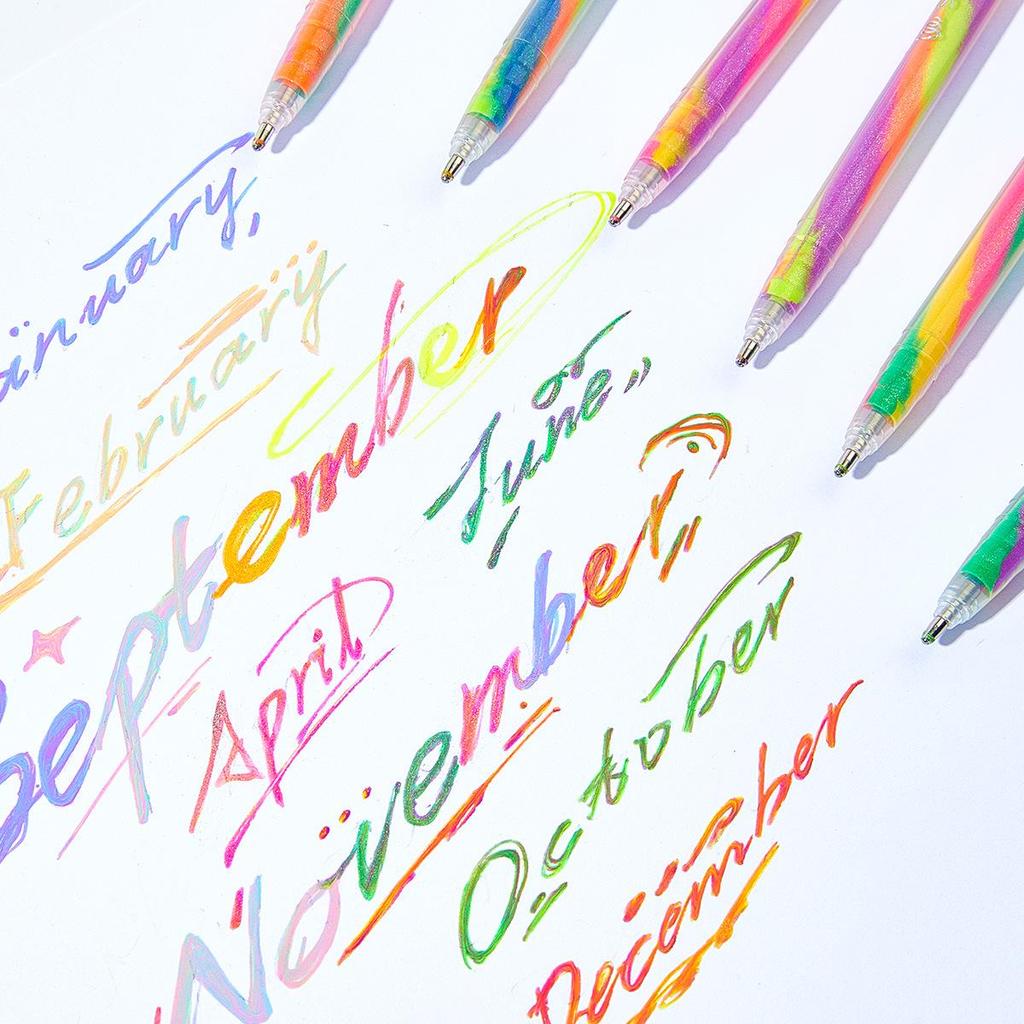 January,
February
September
June
April
November
October
December